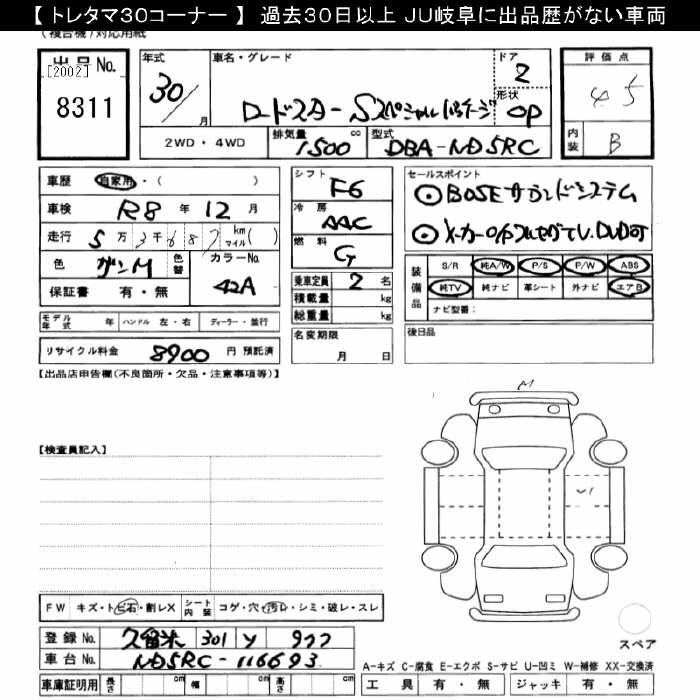 【トレタマ30コーナー】 過去30日以上 JU岐阜に出品歴がない車両
(複合機)対応用紙
出品No. [2002] 8311
年式 30/ 月
車名・グレード ロードスター Sスペシャルパッケージ
ドア 2
形状 OP
評価点 4.5
内装 B
2WD・4WD
排気量 1500 cc
型式 DBA-ND5RC
車歴 自家用・( )
車検 R8 年 12 月
走行 5万3千687 km マイル( )
色 ガンM 色替 カラーNo. 42A
保証書 有・無
シフト F6
冷房 AAC
燃料 G
乗車定員 2 名
積載量 kg
総重量 kg
セールスポイント
⊙BOSEサウンドシステム
⊙メーカーO/PフルセグTV、DVD可
装備品 S/R 純A/W P/S P/W ABS
純TV 純ナビ 革シート 外ナビ エアB
ナビ型番:
モデル年式 年 ハンドル 左・右 ディーラー・並行
リサイクル料金 8900 円 預託済
名変期限 月 日
後日品
【出品店申告欄(不良箇所・欠品・注意事項等)】
M
【検査員記入】
FW キズ・トビ石・割レX シート内装 コゲ・穴・汚レ・シミ・破レ・スレ
登録No. 久留米 301 977
車台No. ND5RC-116693
車庫証明用 長さ cm 幅 cm 高さ cm
スペア
A-キズ C-腐食 E-エクボ S-サビ U-凹ミ W-補修 XX-交換済
工具 有・無 ジャッキ 有・無